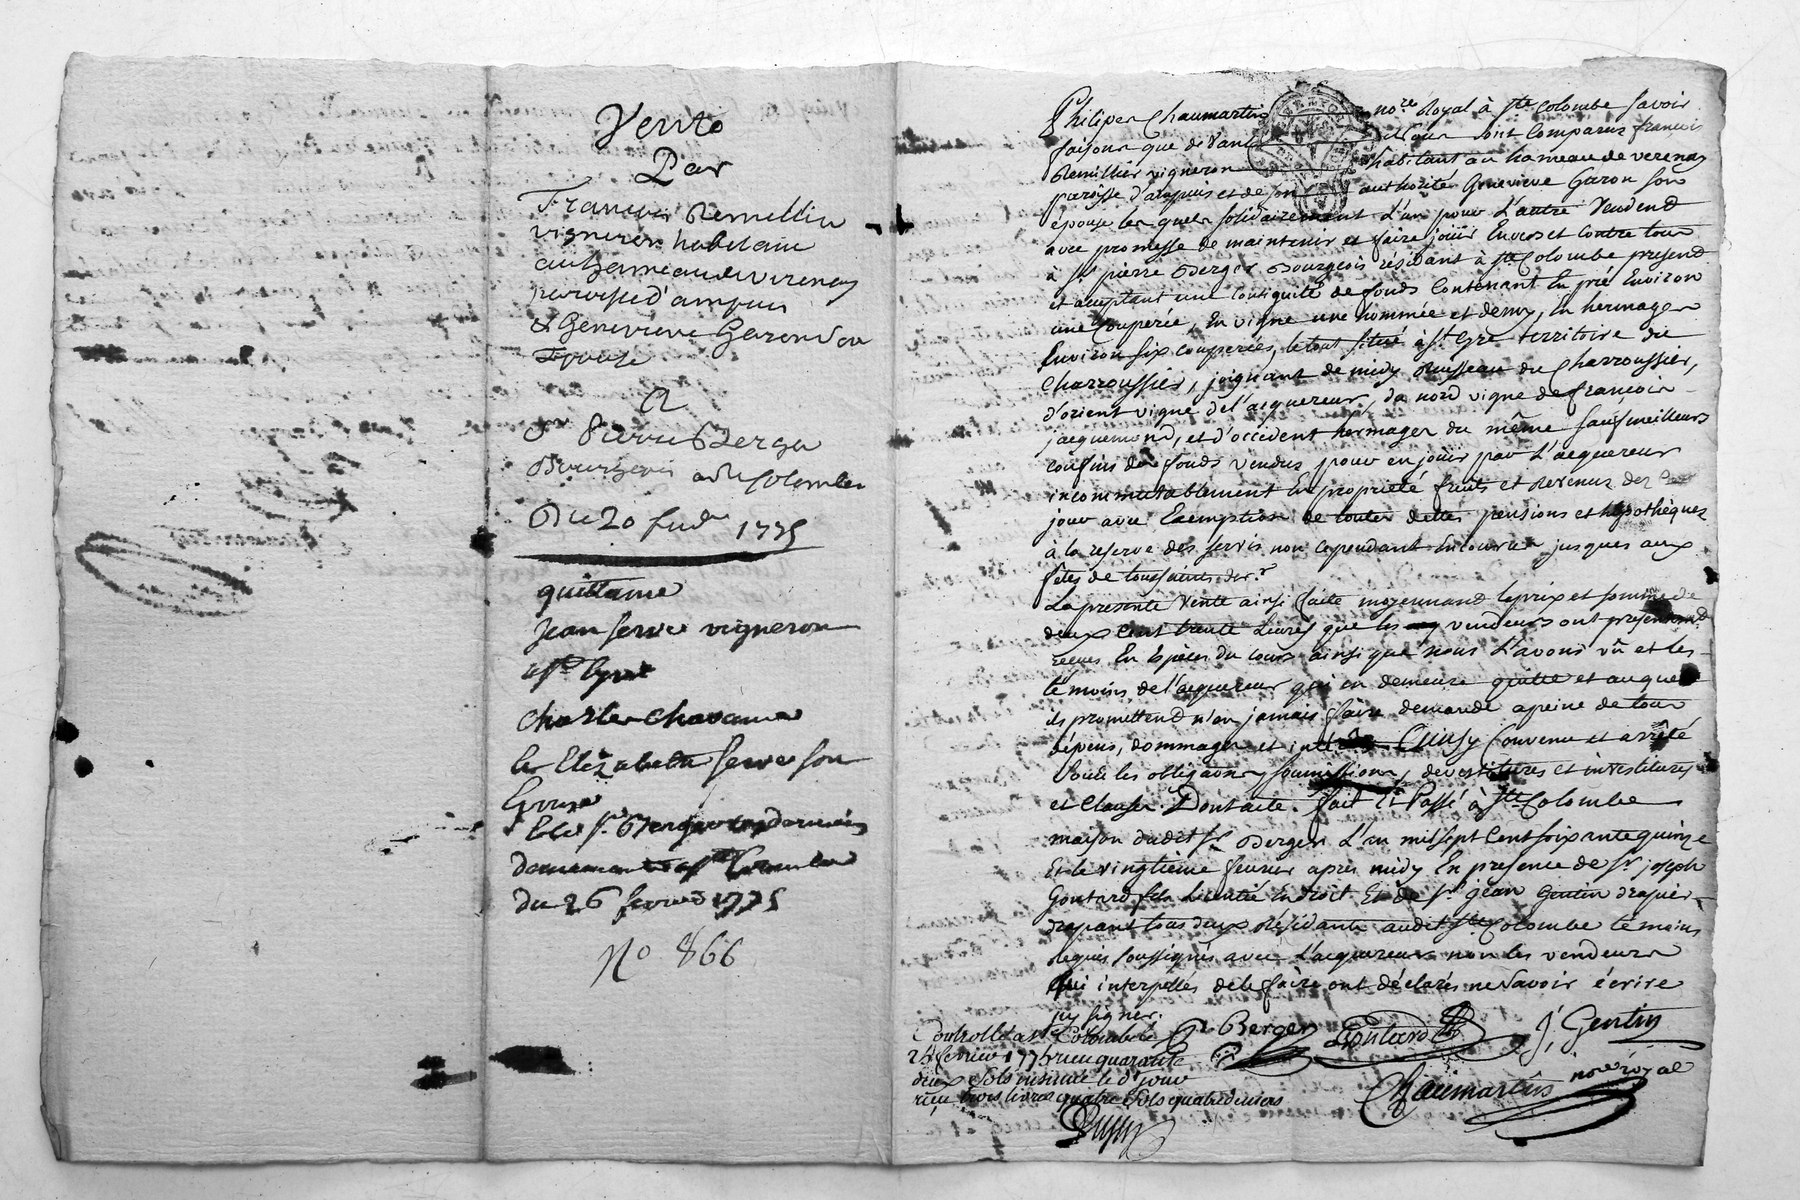 Vente
Par
Francois Remellier
vigneron habitant
au hameau de verenay
paroisse d'ampuis
& Genevieve Garon son
Epouse
A
Sr Pierre Berger
Bourgeois a Ste Colombe
Du 20 fevr 1775
quittance
Jean serve vigneron
a St Cyr
Charles Chavanne
& Elizabeth serve son
Epouse
du 26 fevrier 1775
No 866
Philipes Chaumartin nore Royal à Ste Colombe savoir
faisons que devant sont Comparus francois
Remillier vigneron habitant au hameau de verenay
paroisse d'ampuis et de son authorité Genevieve Garon son
épouse lesquels solidairement L'un pour L'autre Vendent
avec promesse de maintenir et faire joüir Envers et Contre tous
à Sr pierre Berger Bourgeois résidant à Ste Colombe présent
et aceptant une Contiguité de fonds Contenant En pré Environ
une Couperée, En vigne une hommée et demy, En hermages
Environ six couperées, le tout situé à St Cyr territoire du
Charroussier, joignant de midy Ruisseau du Charroussier,
d'orient vigne de l'acquereur, de nord vigne de francois
jacquemond, et d'occident hermages du même sauf meilleurs
confins des fonds vendus pour en jouir par L'acquereur
incommutablement En propriété fruits et Revenus dez Ce
jour avec Exemption de toutes dettes pensions et hypothèques
à la reserve des servis non cependant Encourus jusques aux
fêtes de toussaints der.r
La presente Vente ainsi faite moyennant le prix et somme de
deux Cent trente Livres que les vendeurs ont présentement
reçues En Espèces du cours ainsi que nous L'avons vû et les
témoins de l'acquereur qui en demeure quitte et auquel
ils promettent n'en jamais faire demande a peine de tous
dépens, dommages et intérêts Ainsy Convenu et arrêté
sous les obligaons soumissions, devestitures et investitures
et Clauses Dont acte. fait et Passé à Ste Colombe
maison dudit Sr Berger L'an mil sept Cent soixante quinze
Et le vingtième fevrier après midy En presence de Sr joseph
Goutard fils Licentié En droit Et de Sr jean Gentin drapier
drapant tous deux Résidants audit Ste Colombe témoins
Requis soussignés avec L'acquereur non les vendeurs
qui interpellés de le faire ont déclarés ne Savoir écrire
ny signer.
Pre Berger Goutard fils J, Gentin
Chaumartin nore royal
Controllé a Ste Colombe le
24 fevrier 1775 recu quarante
deux sols insinué le d. jour
recu trois livres quatre sols quatre deniers